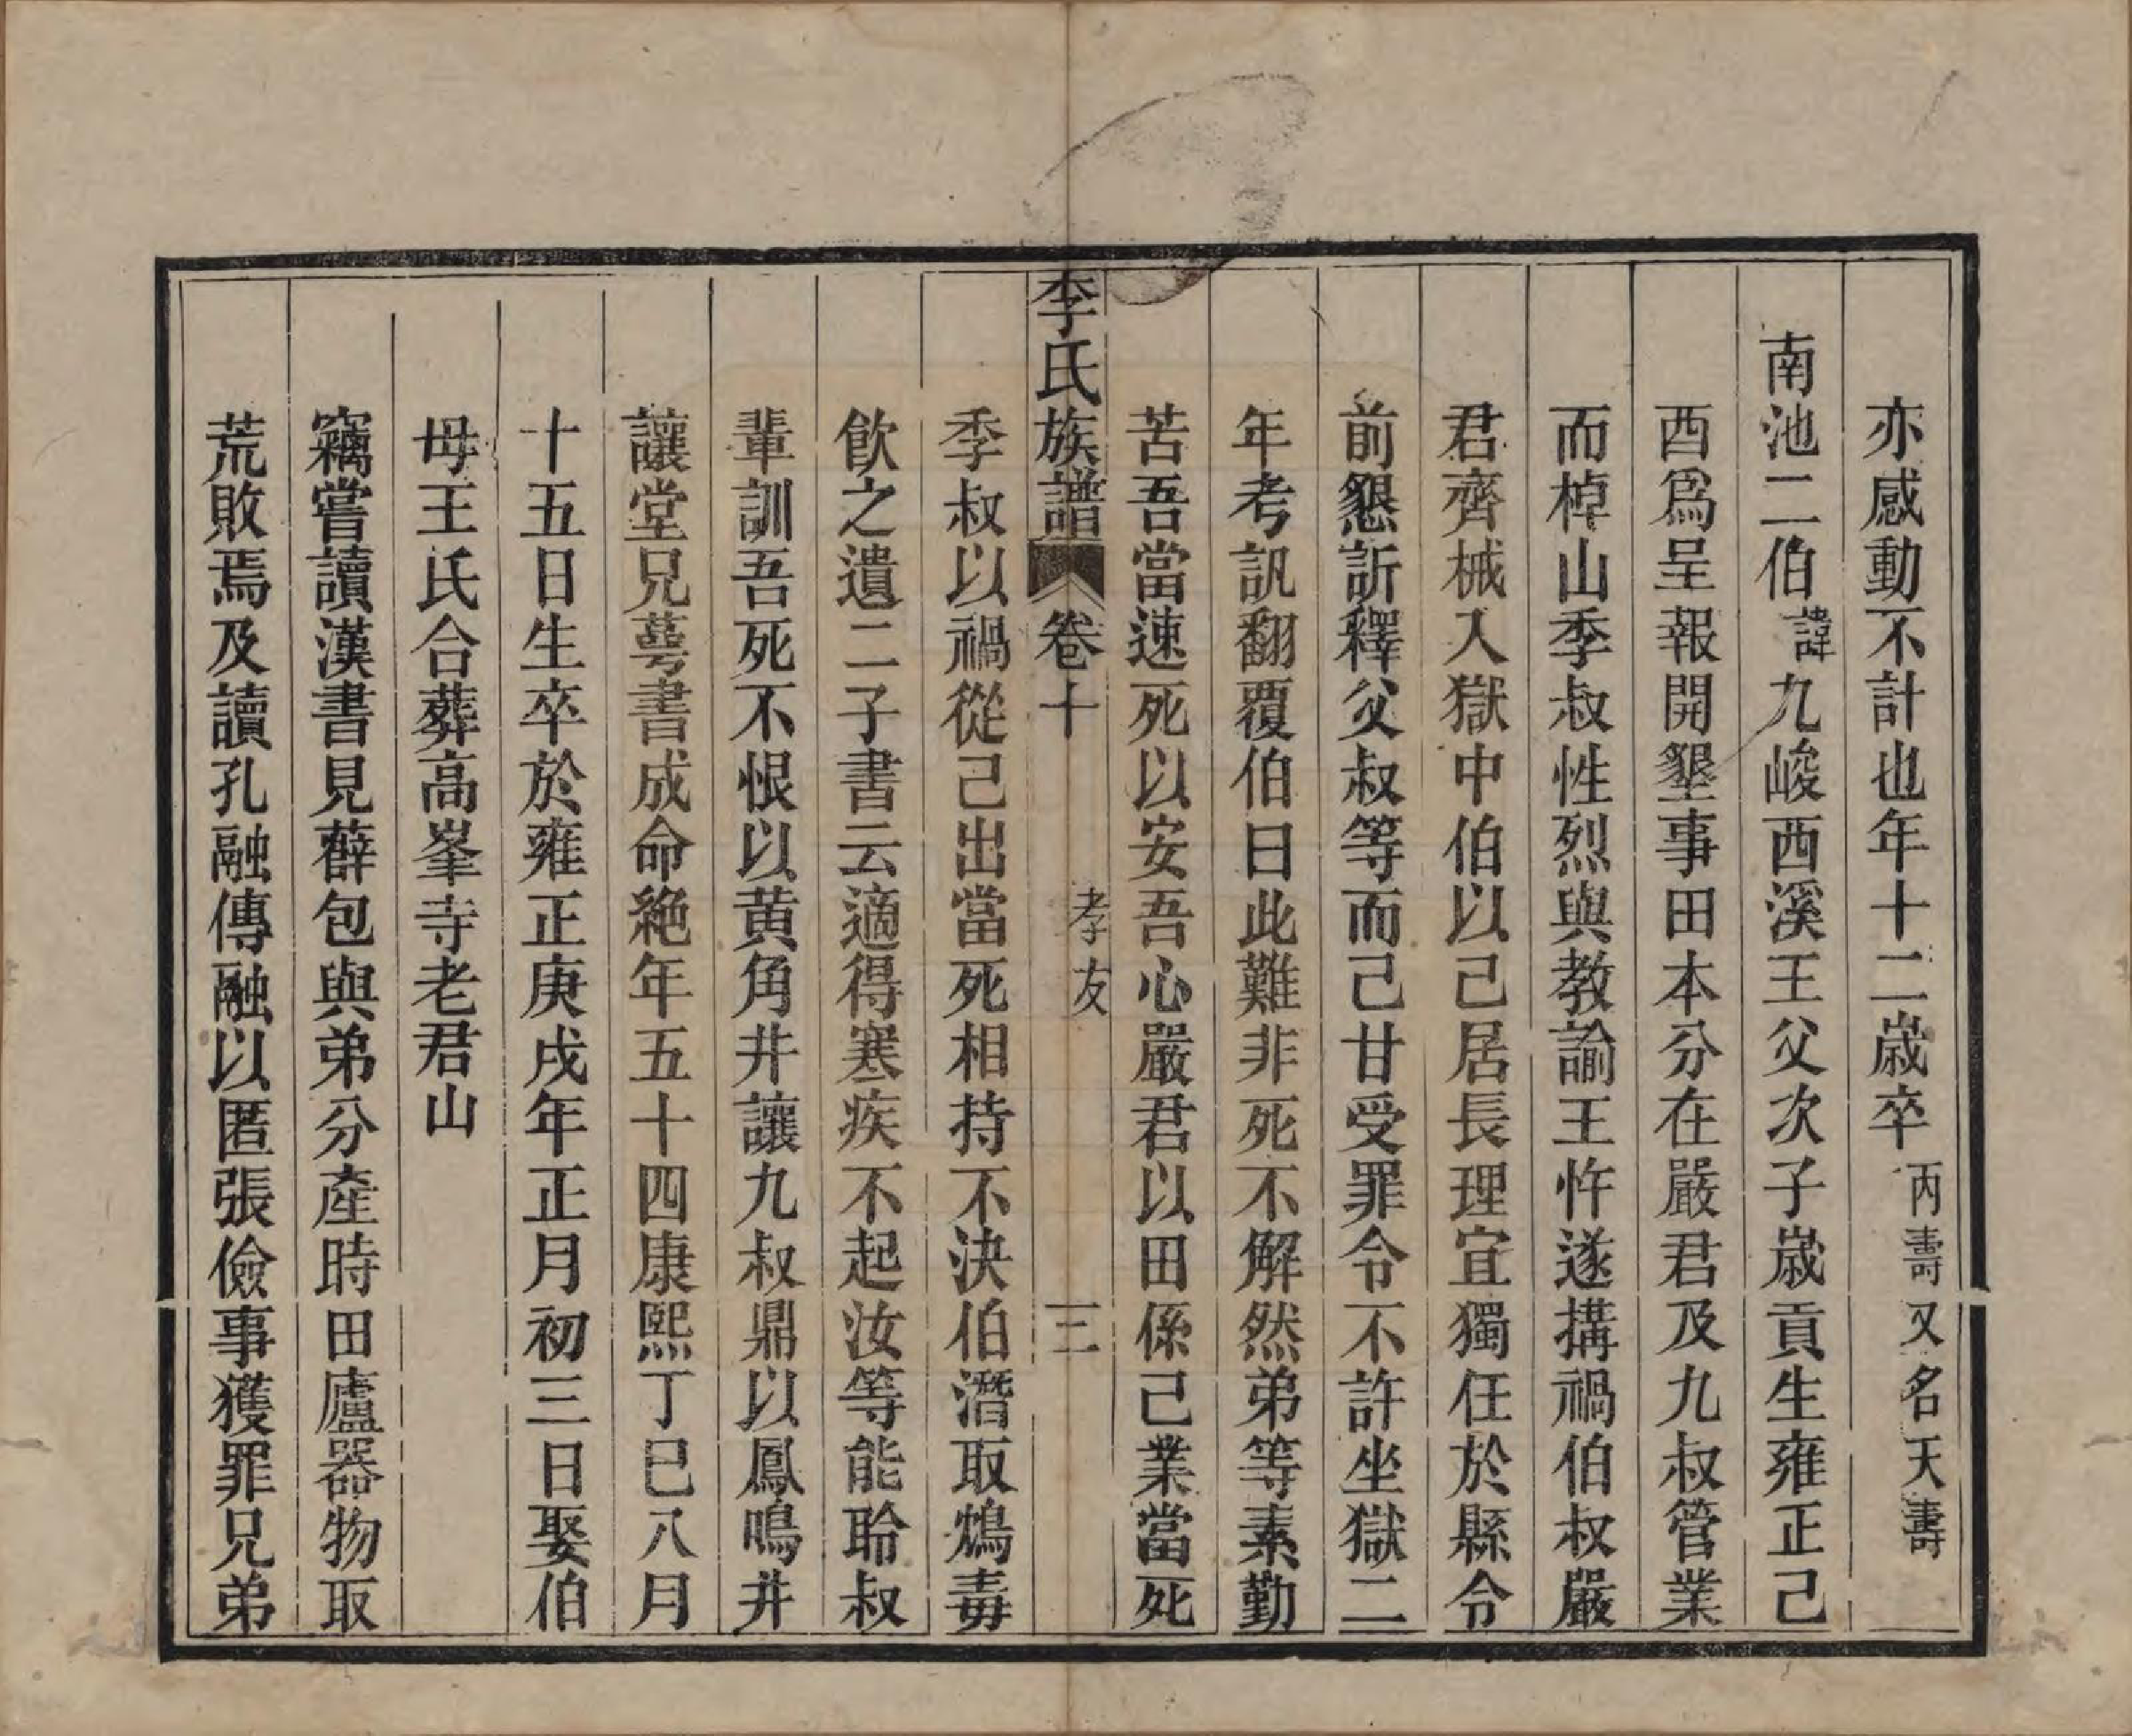 亦感動不計也年十二歲卒丙壽又名天壽
南池二伯諱九峻西溪王父次子歲貢生雍正己
酉爲呈報開墾事田本分在嚴君及九叔管業
而棹山季叔性烈與教諭王忤遂搆禍伯叔嚴
君齊械入獄中伯以己居長理宜獨任於縣令
前懇訢釋父叔等而己甘受罪令不許坐獄二
年考訊翻覆伯曰此難非死不解然弟等素勤
苦吾當速死以安吾心嚴君以田係己業當死
李氏族譜 卷十 孝友 三
季叔以禍從己出當死相持不決伯潛取鴆毒
飲之遺二子書云適得寒疾不起汝等能聆叔
輩訓吾死不恨以黃角井讓九叔鼎以鳳鳴井
讓堂兄蕚書成命絕年五十四康熙丁巳八月
十五日生卒於雍正庚戌年正月初三日娶伯
母王氏合葬高峯寺老君山
竊嘗讀漢書見薛包與弟分產時田廬器物取
荒敗焉及讀孔融傳融以匿張儉事獲罪兄弟